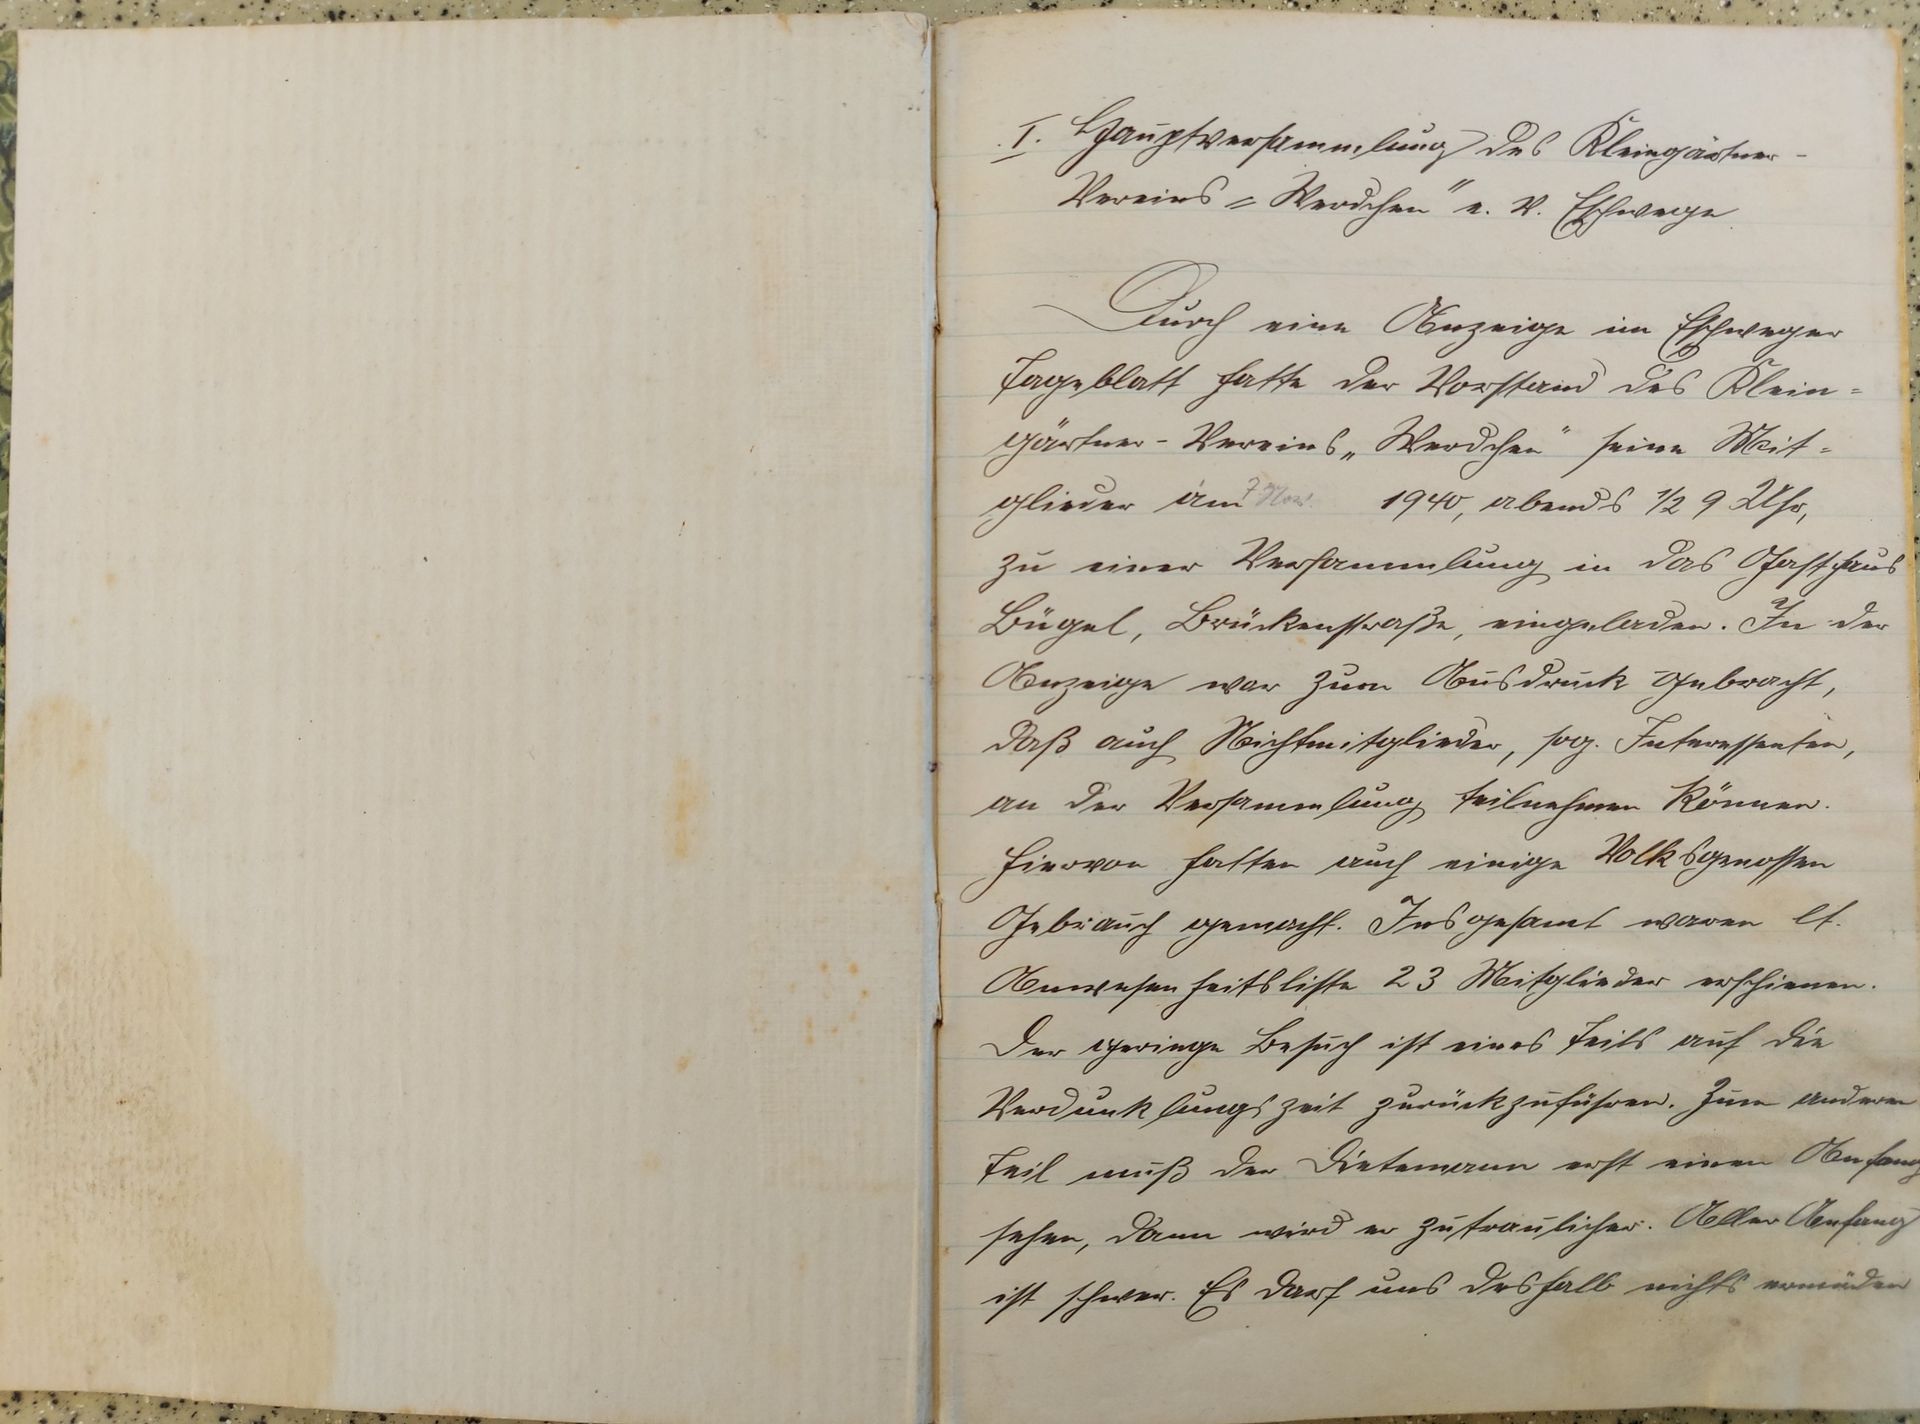 I. Hauptversammlung des Kleingärtner-
Vereins "Werdchen" e. V. Eschwege
Durch eine Anzeige im Eschweger
Tageblatt hatte der Vorstand des Klein=
gärtner-Vereins „Werdchen" seine Mit=
glieder am 7 Nov. 1940, abends ½ 9 Uhr,
zu einer Versammlung in das Gasthaus
Bügel, Brückenstraße, eingeladen. In der
Anzeige war zum Ausdruck gebracht,
daß auch Nichtmitglieder, sog. Interessenten,
an der Versammlung teilnehmen können.
Hiervon hatten auch einige Volksgenossen
Gebrauch gemacht. Insgesamt waren lt.
Anwesenheitsliste 23 Mitglieder erschienen.
Der geringe Besuch ist eines Teils auf die
Verdunklungszeit zurückzuführen. Zum anderen
Teil muß der Dietemann erst einen Anfang
sehen, dann wird er zutraulicher. Aller Anfang
ist schwer. Es darf uns deshalb nichts ermüden